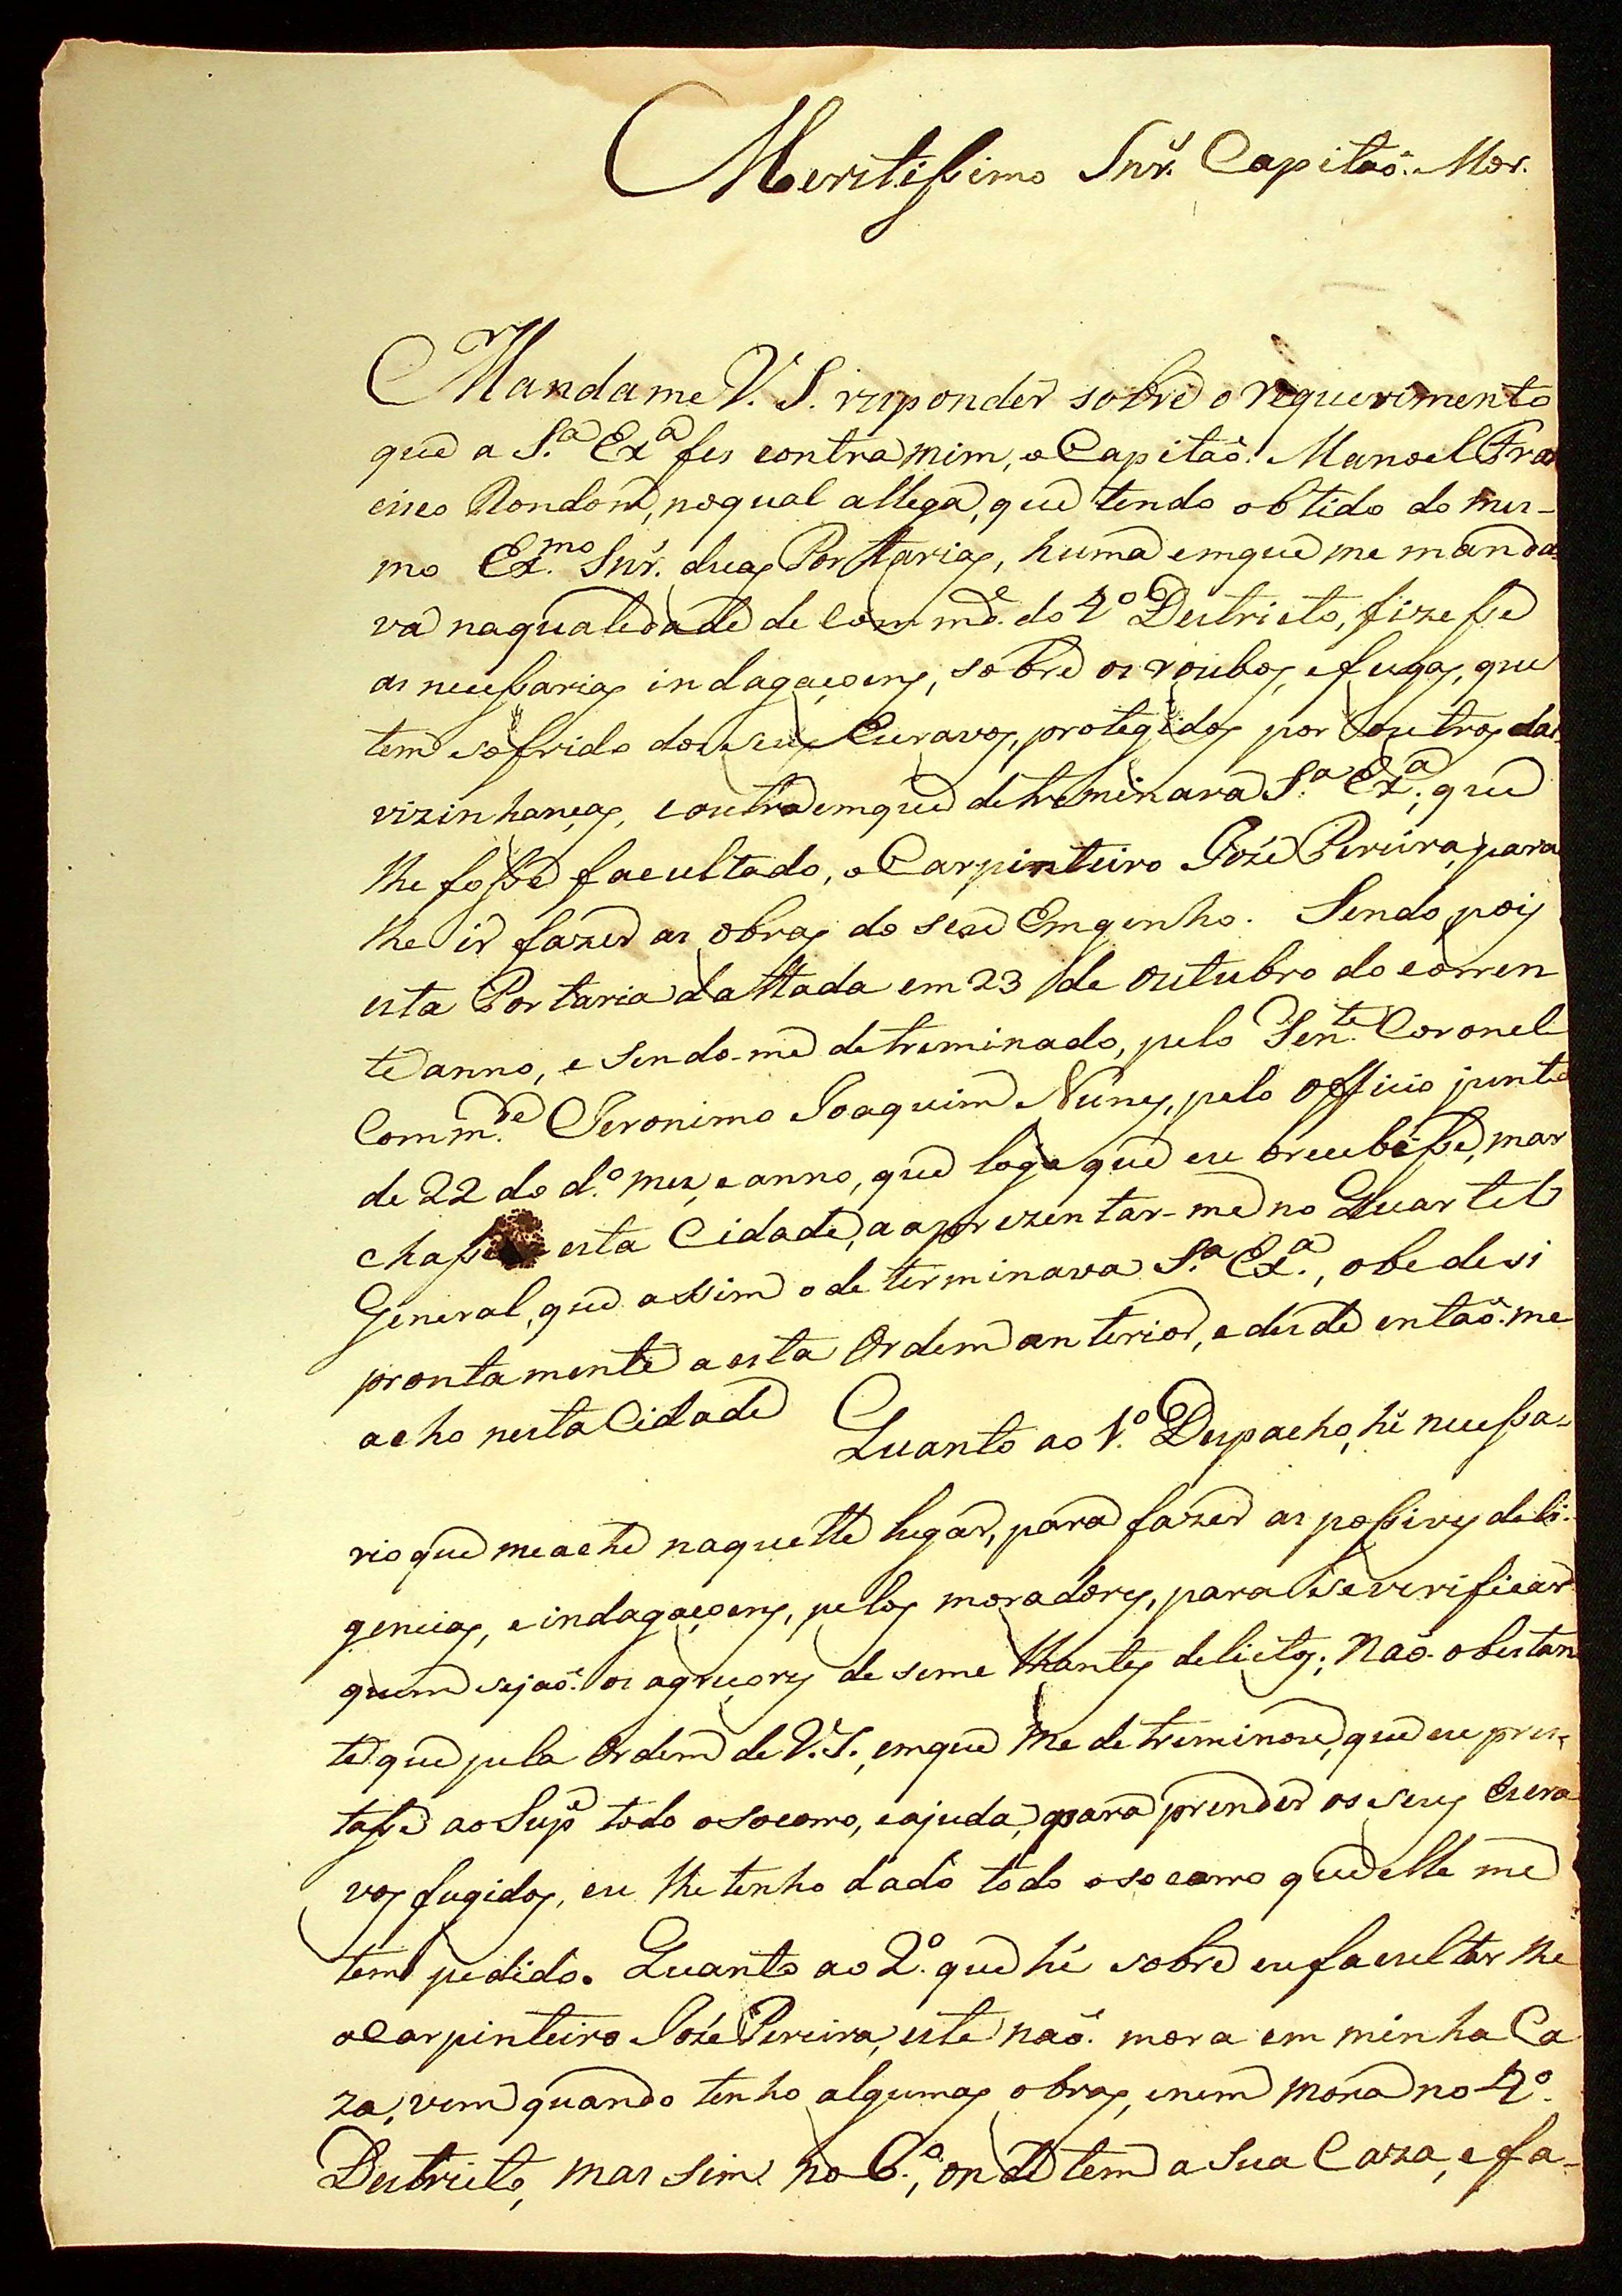 Meritissimo Snr. Capitaõ. Mor.
Mandame V. S. responder sobre o requerimento
que a S.ª Ex.ª fes contra mim, o Capitaõ. Manoel Fran
cisco Rondom, noqual allega, que tendo obtido do mes-
mo Ex.mo Snr. duas Portarias, huma emque me manda
va naqualedade de Comm.de do 4º Destricto, fizesse
as necessarias indagaçoens, sobre os roubos, e fugas, que
tem sofrido dos seus Escravos, protegidos por outros das
vizinhanças, e outra emque detreminara S.ª Ex.ª, que
lhe fosse facultado, o Carpinteiro José Pereira, para
lhe ir fazer as obras do seu Emgenho. Sendo pois
esta Portaria dattada em 23 de outubro do corren
te anno, e sendo-me detreminado, pelo Ten.te Coronel
Comm.de Jeronimo Joaquim Nunes, pelo officio junto
de 22 do d.º mes, e anno, que logo que eu o recebesse, mar
chasse esta Cidade, a aprezentar-me no Quartel
General, que assim o determinava S.ª Ex.ª, obedesi
prontamente a esta Ordem anterior, e desde entaõ. me
acho nesta Cidade Quanto ao 1.º Despacho, hé necessa-
rio que me ache naquelle lugar, para fazer as possiveis deli-
gencias, e indagaçoens, pelos moradores, para se verificar
quem sejaõ. os agreçores de seme lhantes delictos; Naõ. obstan
te que pela Ordem de V.S., emque me detreminou, que eu pres-
tasse ao Sup.e todo o socorro, e ajuda, para prender os seus Escra
vos fugidos, eu lhe tenho dado todo o socorro que elle me
tem pedido. Quanto ao 2.º que hé sobre eu facultar lhe
o Carpinteiro José Pereira, este naõ. mora em minha Ca
za, vem quando tenho algumas obras, e nem mora no 4º.
Destricto, mas sim no 6.º, onde tem a sua Caza, e fa-